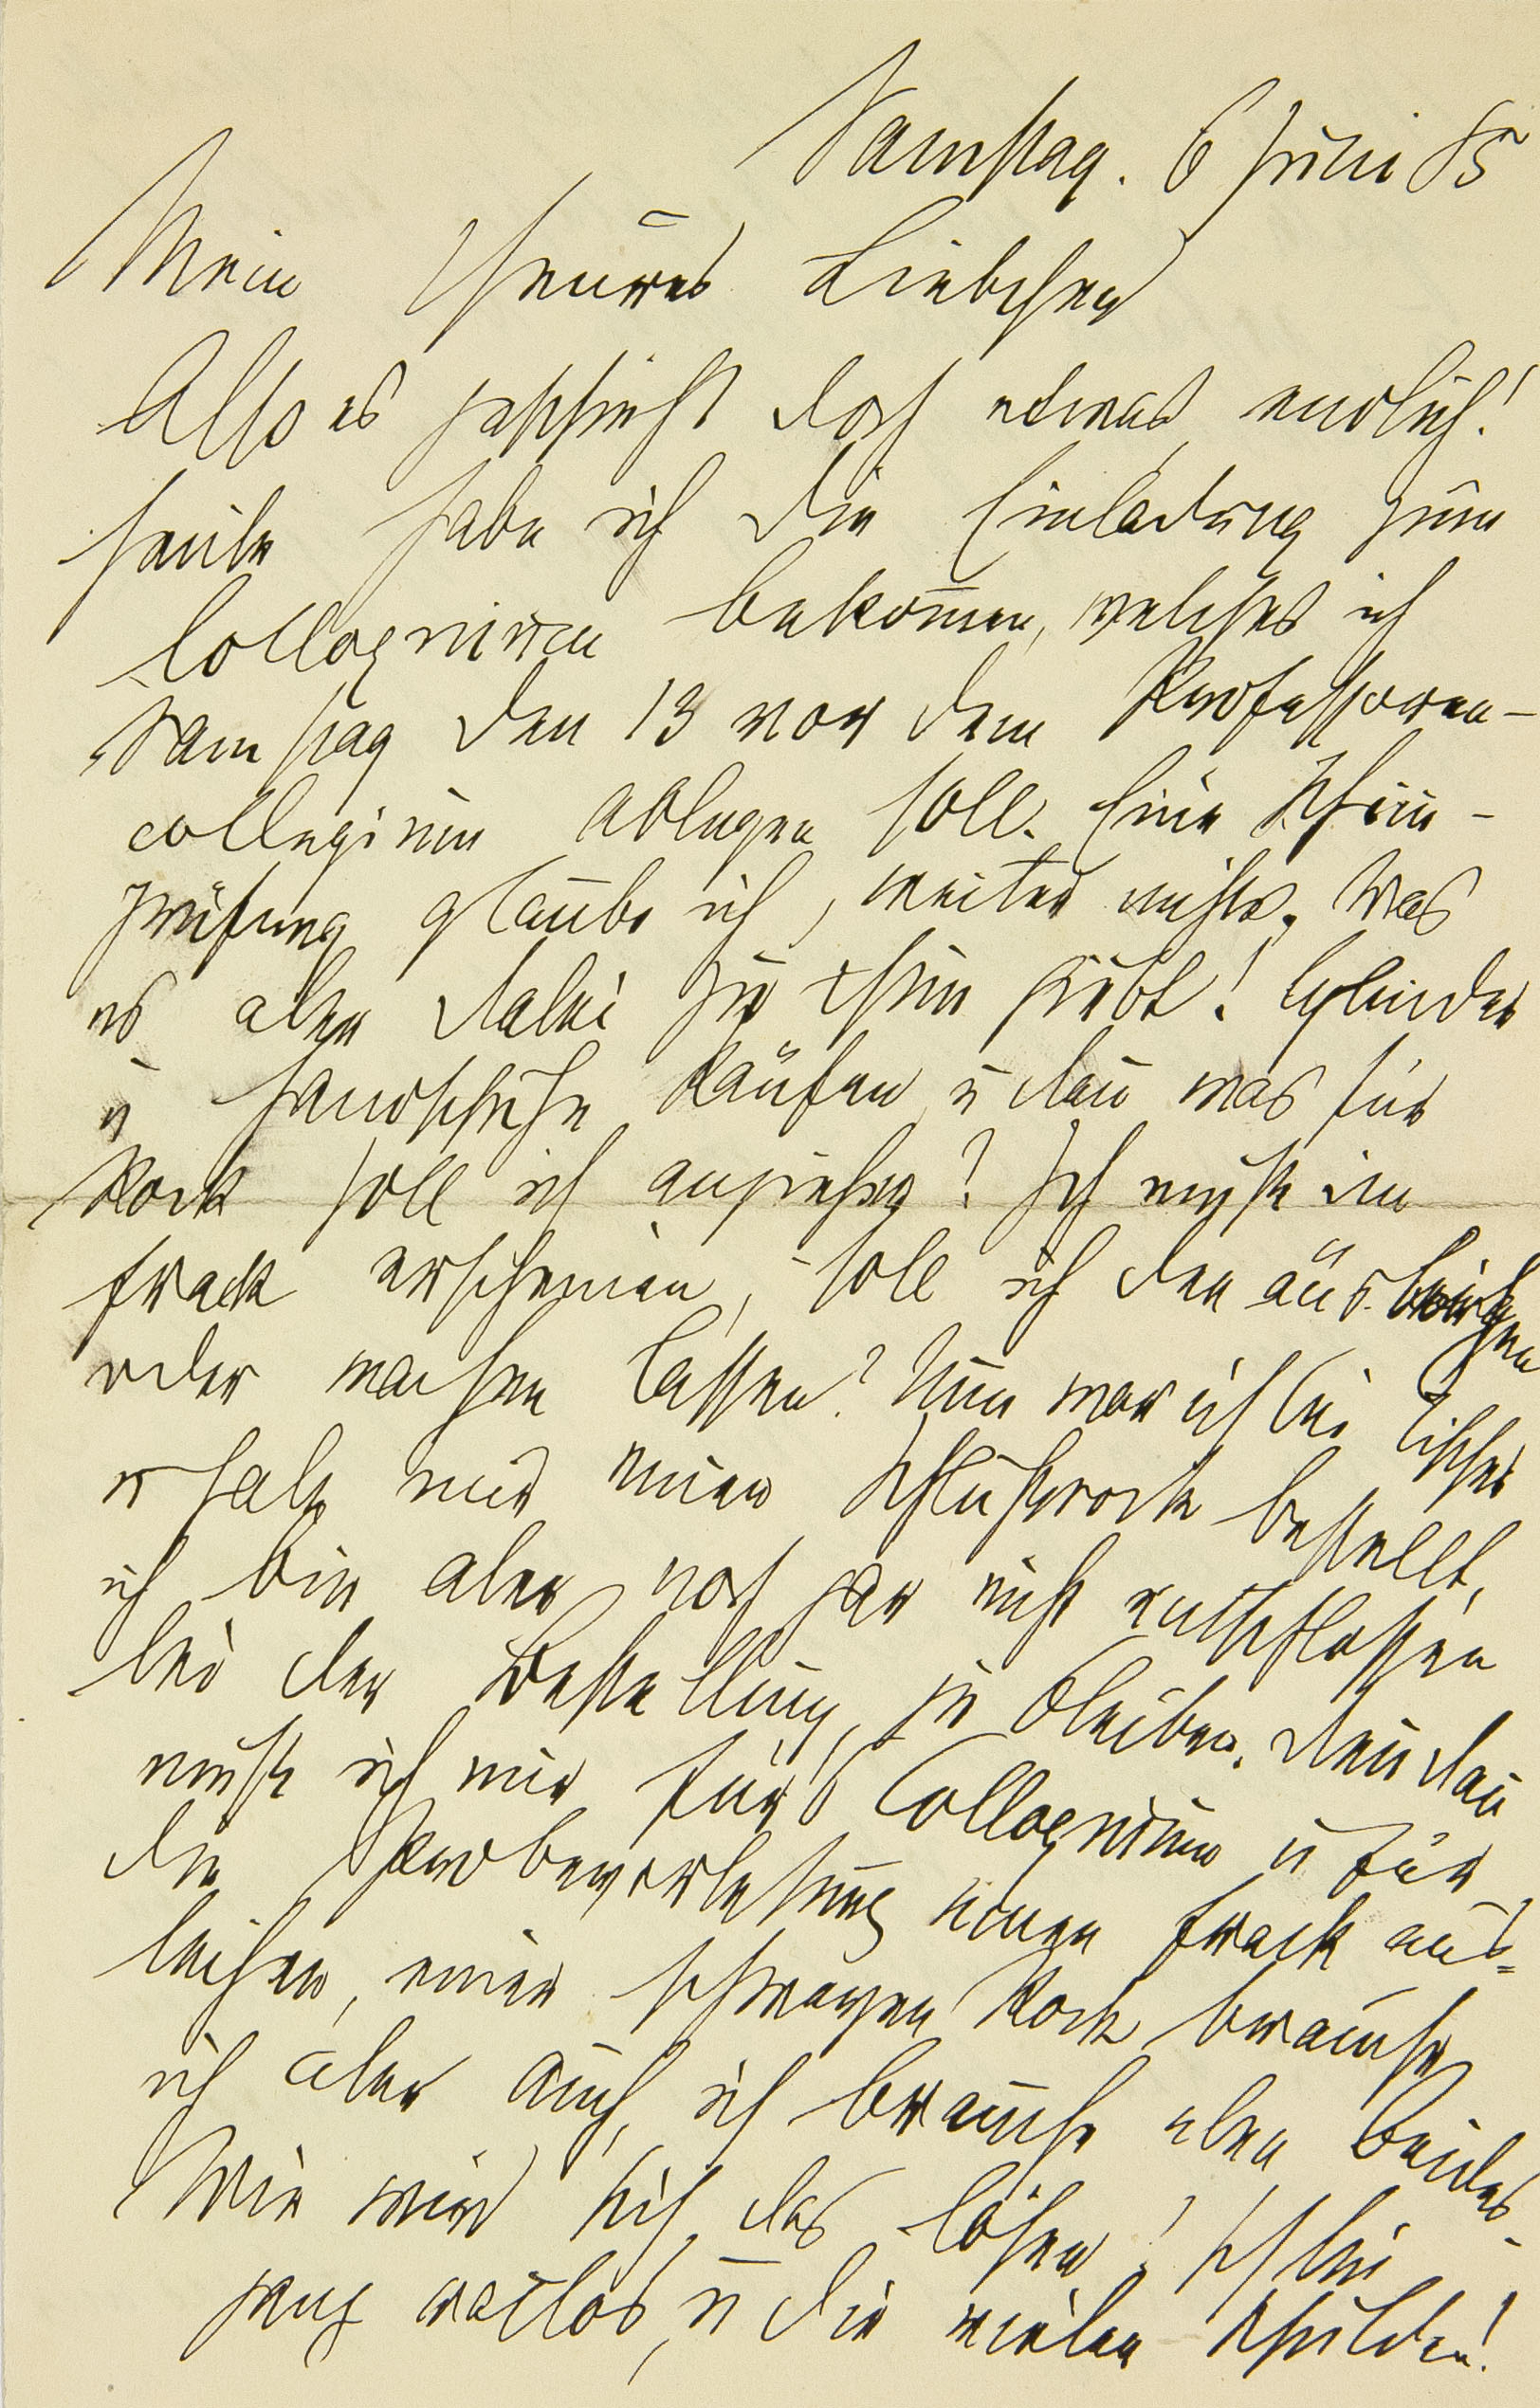 Samstag. 6 Juni 85
Mein theures Liebchen
Also es geschieht doch etwas endlich!
Heute habe ich die Einladung zum
Colloquium bekommen, welches ich
Samstag den 13 vor dem Professoren-
collegium ablegen soll. Eine Schein-
prüfung glaube ich, weiter nichts. Was
es aber dabei zu thun giebt! Cylinder
u Handschuhe kaufen u dann was für
Rock soll ich anziehen? Ich muß im
Frack erscheinen, soll ich den ausborgen
oder machen lassen? Nun war ich bei Tischer
u habe mir einen Schlußrock bestellt,
ich bin aber noch gar nicht entschlossen
bei der Bestellung zu bleiben. Denn dann
muß ich mir für's Colloquium u für
die Probevorlesung einen Frack aus-
leihen, einen schwarzen Rock brauche
ich aber auch, ich brauche eben Beides.
Wie wird sich das lösen! Ich bin
ganz ratlos, u die vielen Schulden!